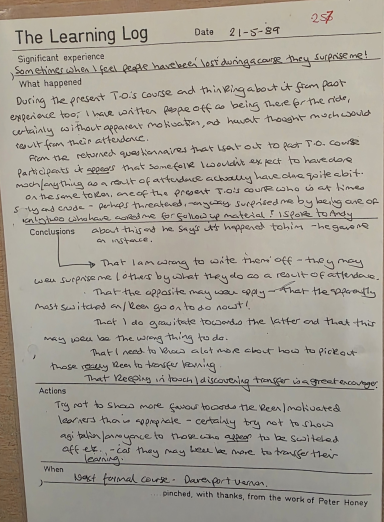 257
The Learning Log Date 21-5-89
Significant experience
Sometimes when I feel people have been lost during a course they surprise me!
What happened
During the present T.O.'s course and thinking about it from past
experience too, I have written people off as being there for the ride,
certainly without apparent motivation, and havent thought much would
result from their attendance.
From the returned questionnaires that I sent out to past T.O. course
participants it appears that some folk I wouldnt expect to have done
much/anything as a result of attendance actually have done quite a bit.
On the same token, one of the present T.O.'s course who is at times
and crude - perhaps threatened - anyway surprised me by being one of
only two who have asked me for follow up material! I spoke to Andy
Conclusions about this and he says it's happened to him - he gave me
an instance.
That I am wrong to write them off - they may
well surprise me/others by what they do as a result of attendance.
That the opposite may well apply - that the apparently
most switched on/keen go on to do nowt!
That I do gravitate towards the latter and that this
may well be the wrong thing to do.
That I need to know a lot more about how to pick out
those really keen to transfer learning.
That keeping in touch/discovering transfer is a great encourager
Actions
Try not to show more favour towards the keen/motivated
learners than is appropriate - certainly try not to show
agitation/annoyance to those who appear to be switched
off etc. - cos they may well be more to transfer their
learning.
When
Next formal course - Davenport Vernon.
... pinched, with thanks, from the work of Peter Honey